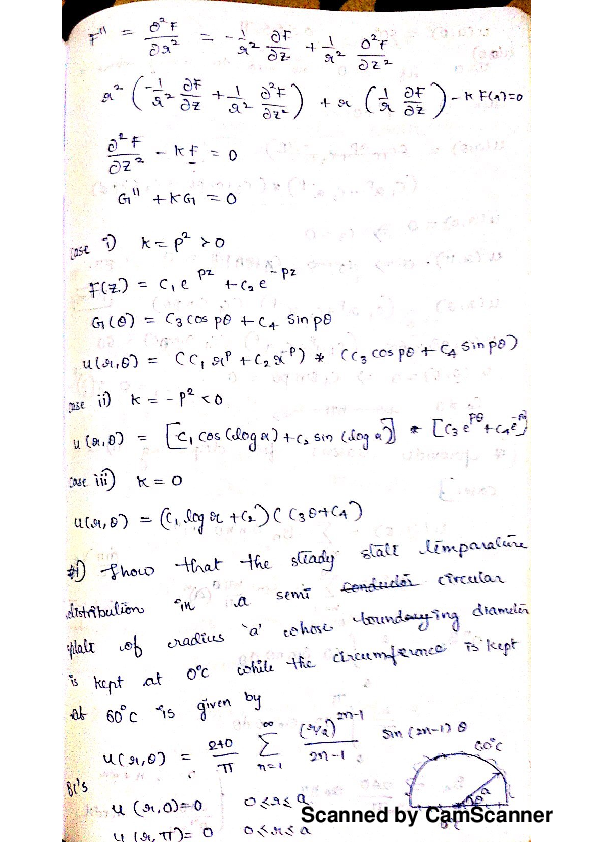 F'' = ∂²F/∂r² = -1/r² ∂F/∂z + 1/r² ∂²F/∂z²
r² (-1/r² ∂F/∂z + 1/r² ∂²F/∂z²) + r (1/r ∂F/∂z) - k F(r)=0
∂²F/∂z² - kF = 0
G'' + KG = 0
case i) k = p² > 0
F(z) = C₁e^pz + C₂e^-pz
G(θ) = C₃ cos pθ + C₄ sin pθ
u(r,θ) = (C₁ r^p + C₂ r^-p) * (C₃ cos pθ + C₄ sin pθ)
case ii) k = -p² < 0
u(r,θ) = [C₁ cos(log r) + C₂ sin(log r)] * [C₃e^pθ + C₄e^-pθ]
case iii) k = 0
u(r,θ) = (C₁ log r + C₂) (C₃θ + C₄)
#1) Show that the steady state temparature
distribution in a semi conductor circular
plate of radius 'a' whose boundarying diameter
is kept at 0°C while the circumference is kept
at 60°C is given by
u(r,θ) = 240/π ∑_{n=1}^{∞} (r/a)^{2n-1}/(2n-1) sin(2n-1)θ
60°C
Bc's
u(r,0)=0 0≤r≤a
u(r,π)=0 0≤r≤a
Scanned by CamScanner